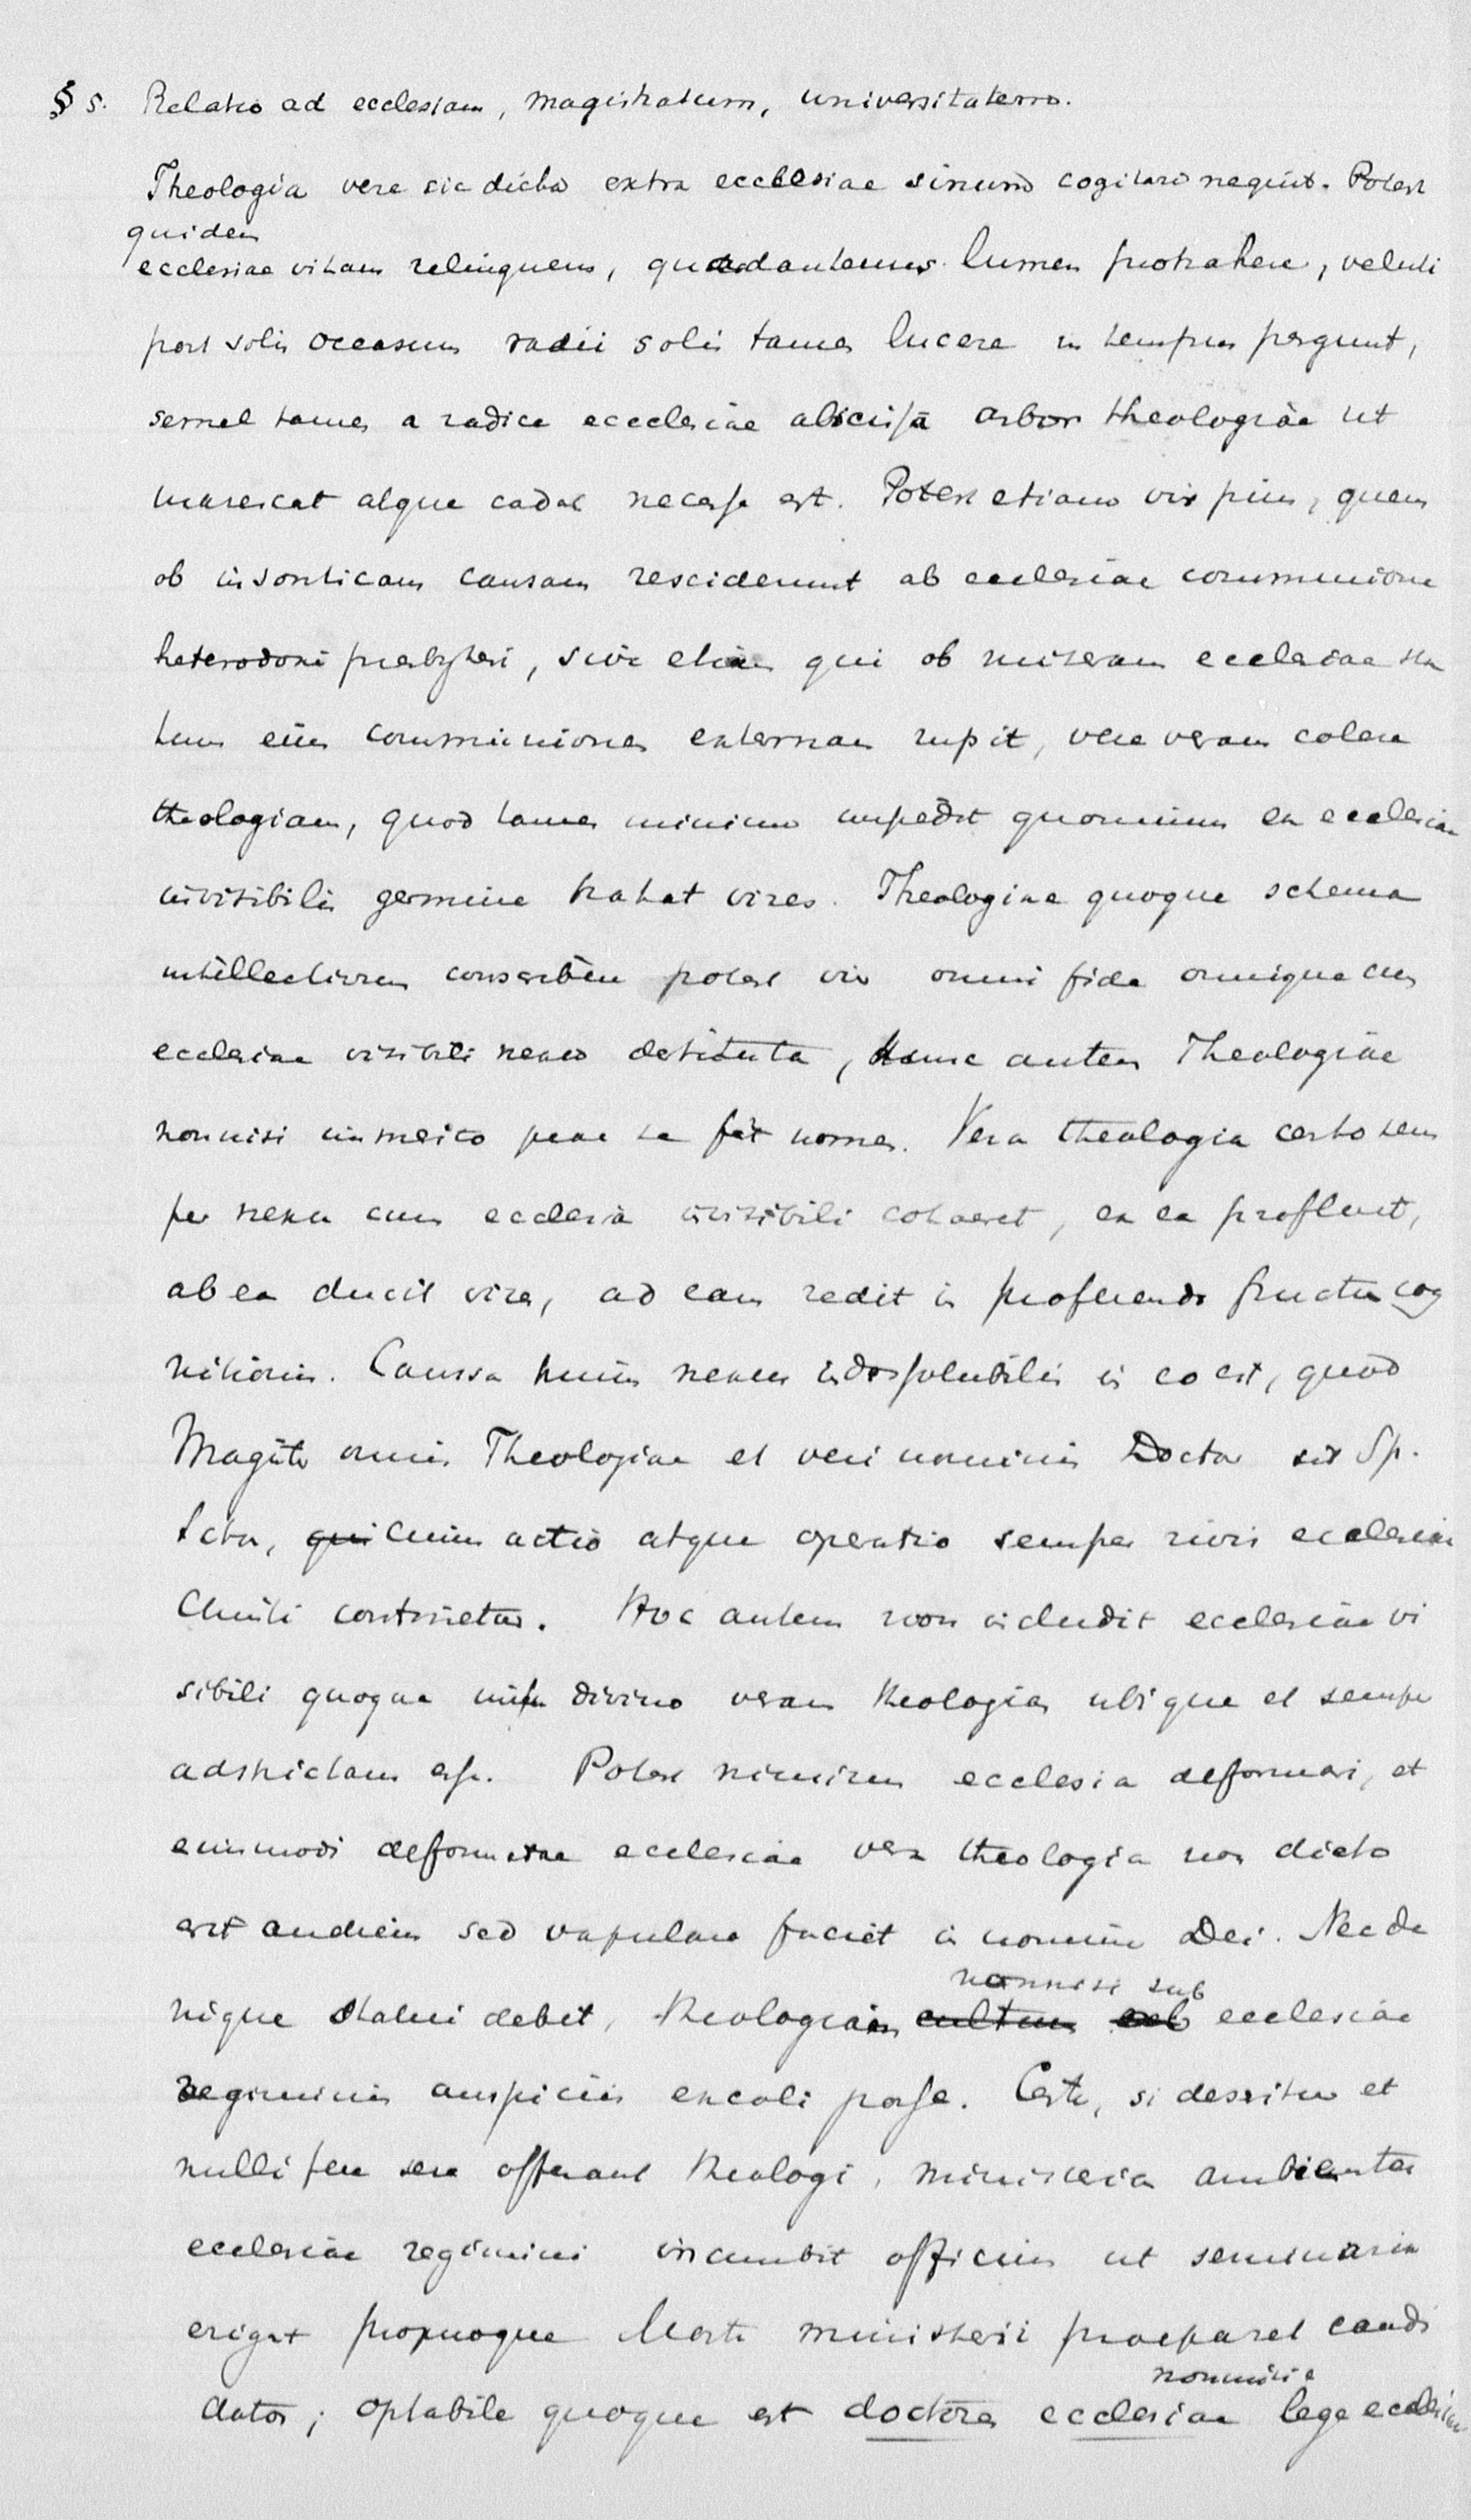 § 5. Relatio ad ecclesiam, magistratum, universitatem.
Theologia vere sic dicta extra ecclesiae sinum cogitari nequit. Potest
quidem
ecclesiae vitam relinquens, quadantenus lumen protrahere, veluti
post solis occasum radii solis tamen lucere in tempus pergunt,
semel tamen a radice ecclesiae abscissa arbor theologiae ut
marescat atque cadat necesse est. Potest etiam vir pius, quem
ob insonticam causam resciderunt ab ecclesiae communione
heterodoxi presbyteri, sive etiam qui ob miseram ecclesiae sta
tum eius communionem externam rupit, vere veram colere
theologiam, quod tamen minime impedit quominus ex ecclesiae
invisibilis germine trahat vires. Theologiae quoque schema
intellectivum conscribere potest vir omni fide omnique cum
ecclesiae visibili nexu destituta, hunc autem Theologiae
nonnisi immerito prae se fert nomen. Vera theologia certo sem
per nexu cum ecclesia invisibili cohaeret, ex ea profluit,
ab ea ducit vires, ad eam redit in proferendo fructu cog
nitionis. Caussa huius nexus indissolubilis in eo est, quod
Magister omnis Theologiae et veri nominis Doctor sit Sp.
Sctus, qui cuius actio atque operatio semper rivis ecclesiae
Christi continetur. Hoc autem non includit ecclesiae vi
sibili quoque iussu divino veram theologiam ubique et semper
adstrictam esse. Potest nimirum ecclesia deformari, et
eiusmodi deformatae ecclesiae vera theologia non dicto
erit audiens sed vapulare faciet in nomine Dei. Nec de
nonnisi sub
nique statui debet, theologiam cultum sub ecclesiae
regiminis auspiciis excoli posse. Certe, si desritur et
nulli fere sese offerant theologi, ministeria ambientes
ecclesiae regimini incumbit officium ut seminaria
erigat proprioque Marte ministerii praeparet candi
nonnisi e
datos; optabile quoque est doctores ecclesiae lege ecclesiae